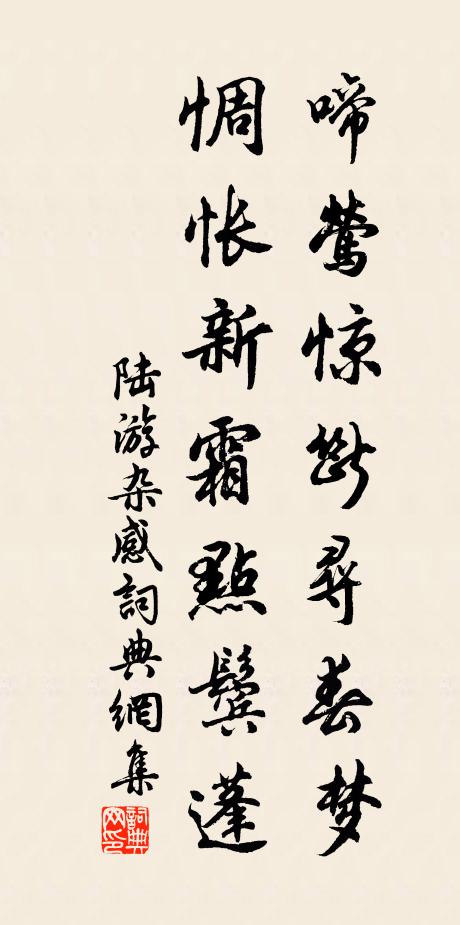 啼莺惊断寻春梦
惆怅新霜點鬓蓬
陆游杂感詞典網集
詞典网印